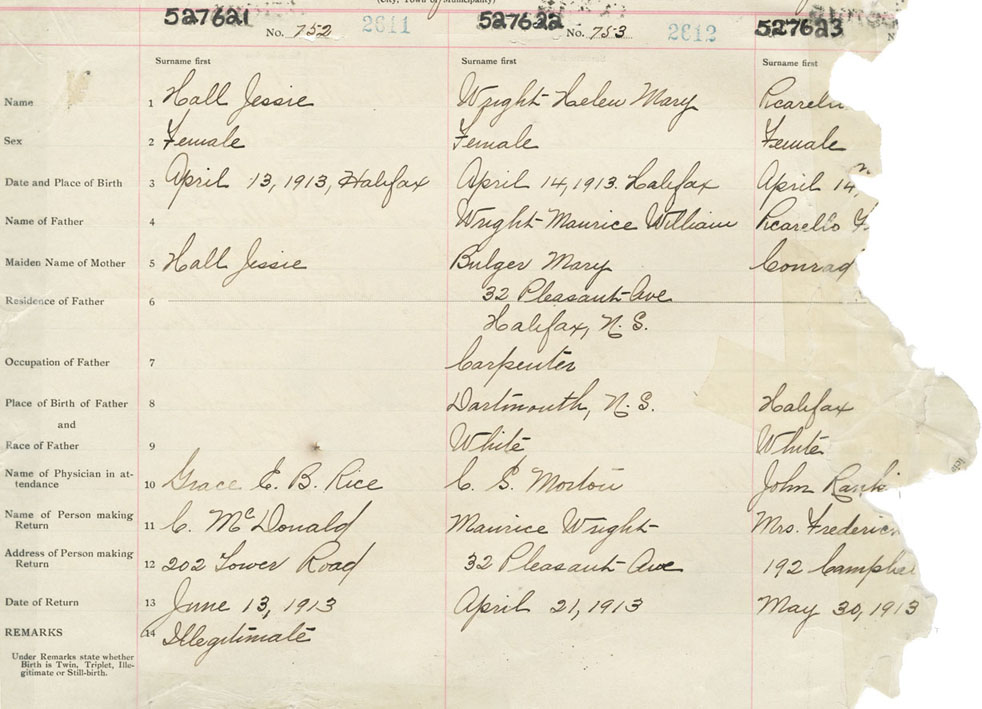 (City, Town or Municipality)
527621 527622 527623
No. 752 2611 No. 753 2612 N
Surname first Surname first Surname first
Name 1 Hall Jessie Wright Helen Mary
Sex 2 Female Female Female
Date and Place of Birth 3 April 13, 1913, Halifax April 14, 1913. Halifax April 14,
Name of Father 4 Wright Maurice William
Maiden Name of Mother 5 Hall Jessie Bulger Mary Conrad
Residence of Father 6 32 Pleasant Ave
Halifax, N.S.
Occupation of Father 7 Carpenter
Place of Birth of Father 8 Dartmouth, N.S. Halifax
and
Race of Father 9 White White
Name of Physician in at-
tendance 10 Grace E. B. Rice C. S. Morton John
Name of Person making
Return 11 C. McDonald Maurice Wright Mrs. Frederic
Address of Person making
Return 12 202 Tower Road 32 Pleasant Ave 192
Date of Return 13 June 13, 1913 April 21, 1913 May 30, 1913
REMARKS 14 Illegitimate
Under Remarks state whether
Birth is Twin, Triplet, Ille-
gitimate or Still-birth.